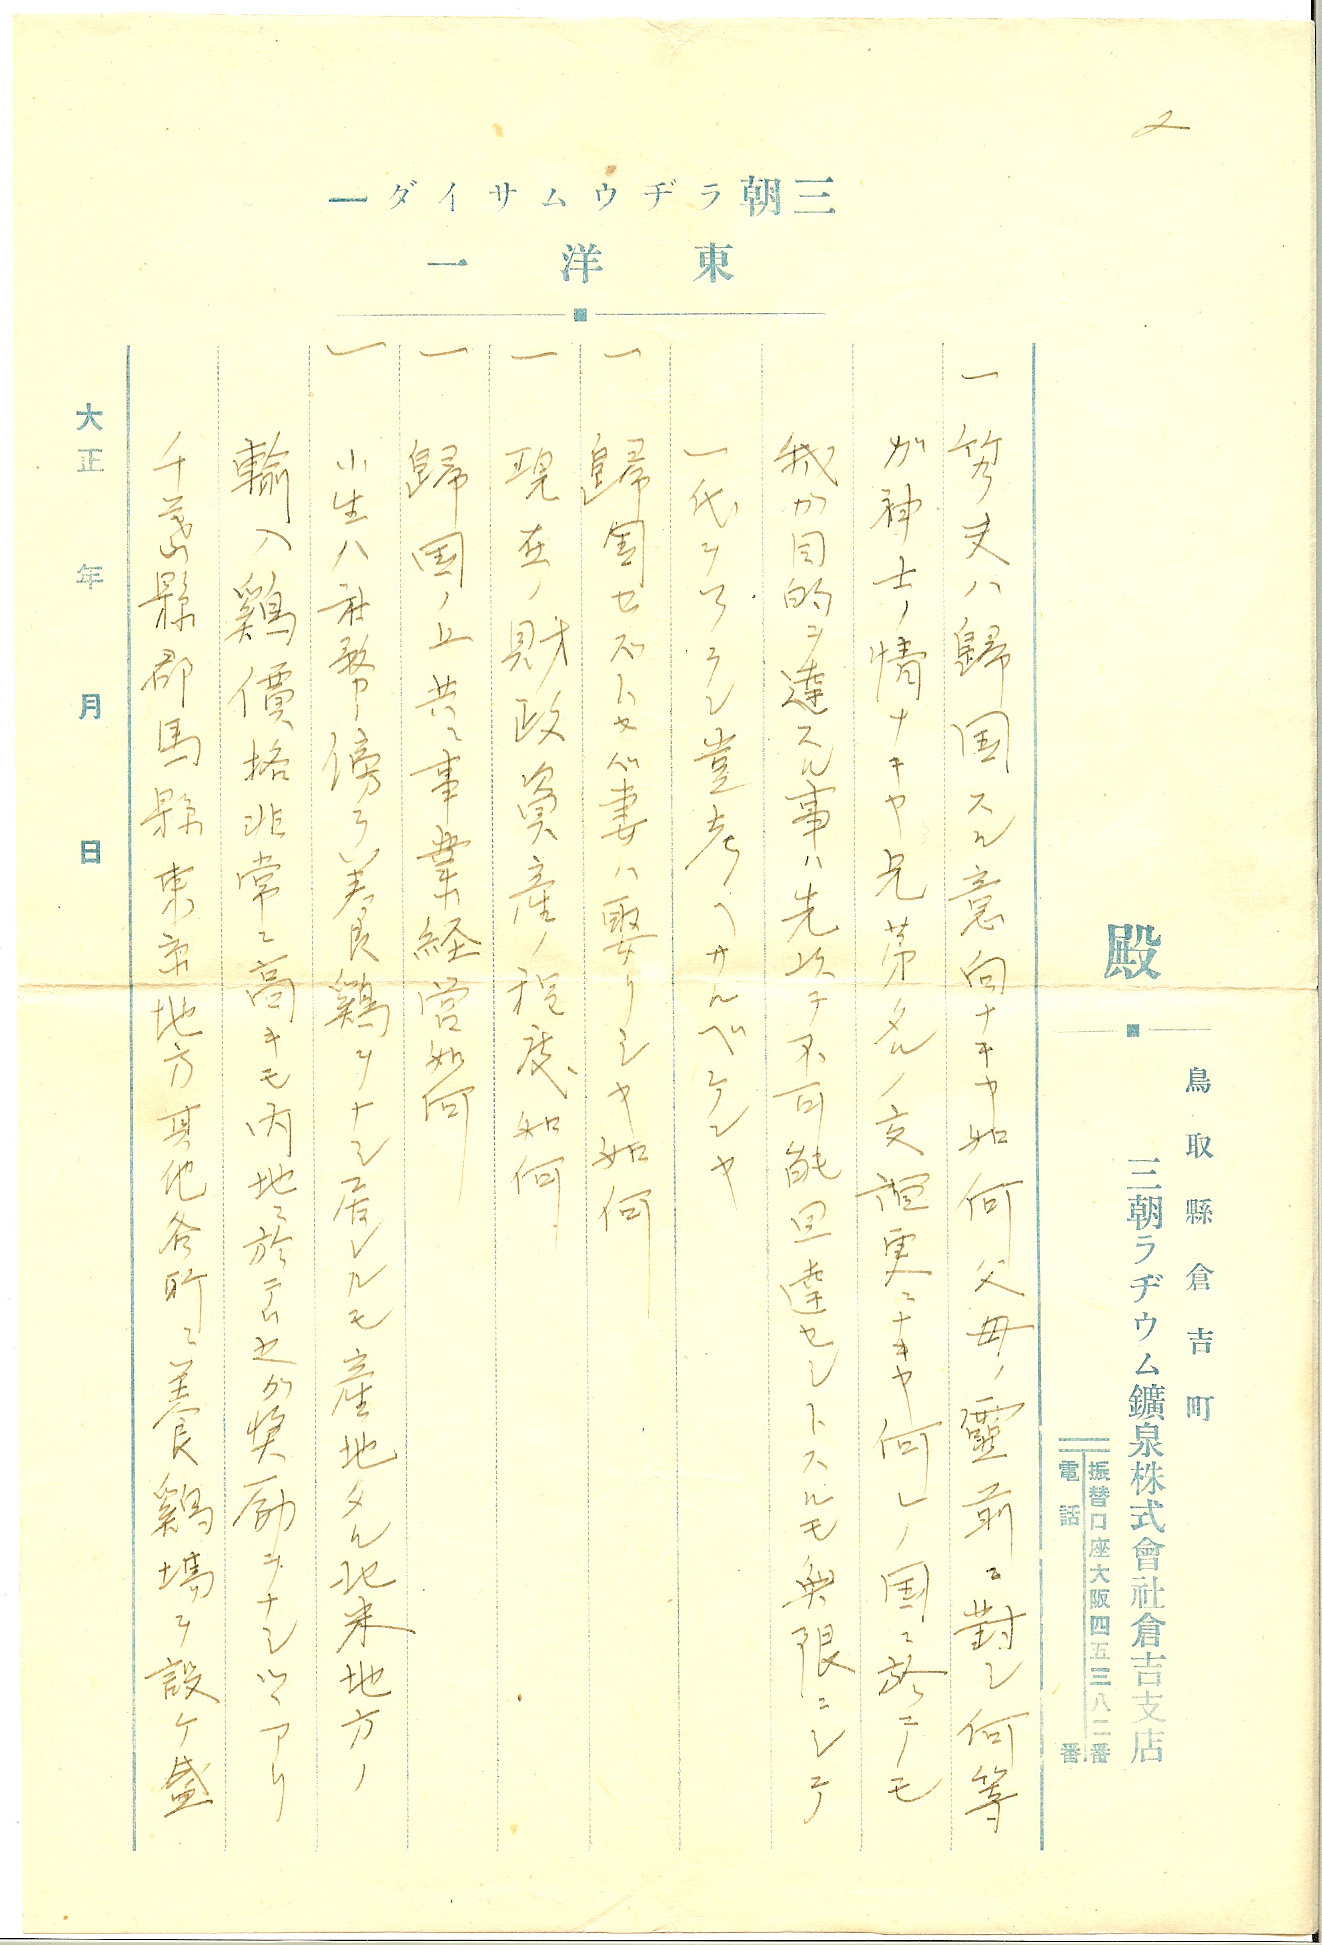 2
三朝ラヂウムサイダー
東洋一
殿
鳥取縣倉吉町
三朝ラヂウム鑛泉株式會社倉吉支店
振替口座大阪四五三八二番
電話 番
一 丈ハ歸国スル意向ナキヤ如何父母ノ靈前ニ對シ何等
カ神士ノ情ナキヤ兄弟タルノ交 更ニナキヤ何レノ国ニ於テモ
我カ目的ヲ達スル事ハ先以テ不可能 達セントスルモ無限ニシテ
一代 豈考ヘサルベケンヤ
一 歸国セズトセハ妻ハ娶リシヤ如何
一 現在ノ財政資産ノ程度如何
一 歸国ノ上共ニ事業経営如何
一 小生ハ社務ノ傍ラ養鷄ヲナシ居レルモ産地タル北米地方ノ
輸入鷄價格非常ニ高キモ内地ニ於テハ之カ奨励ヲナシツヽアリ
千葉縣郡馬縣東京地方其他各所ニ養鷄場ヲ設ケ盛
大正 年 月 日